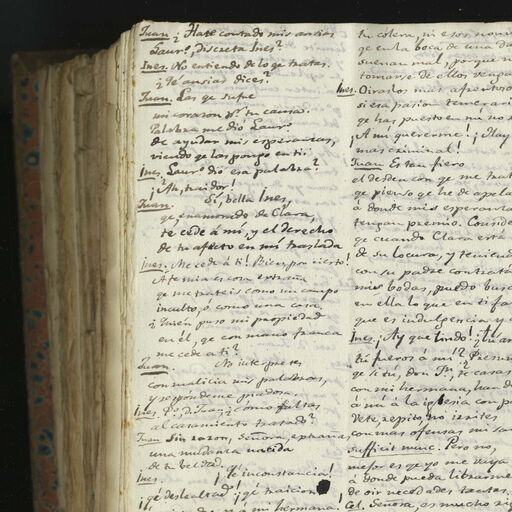 Juan. ¿Hate contado mis ansias
Laur.º, discreta Ines?
Ines. No entiendo de lo qe tratas.
¿Qe ansias dices?
Juan. Las qe sufre
mi corazon pr tu causa.
Palabra me dio Laur.º
de ayudar mis esperanzas,
viendo qe las pongo en ti.
Ines. Laur.º dió esa palabra?
¡Ah, traidor!
Juan. Sí, bella Ines,
qe enamorado de Clara,
te cede á mí, y el derecho
de tu afecto en mí traslada
Ines. Me cede á ti! Bien, por cierto!
A fe mia es cosa extraña
qe me trateis como un campo
inculto, ó como una casa
¿Quién puso mi propiedad
en él, qe con mano franca
me cede a ti?
Juan. No interpretes
con malicia mis palabras,
y respóndeme piadosa.
Ines. D. Juan, ¿cómo faltas
al casamiento tratado?
Juan Sin razon, Señora, extrañas
una mudanza nacida
de tu beldad.
Ines. ¡Qe inconstancia!
¡qé deslealtad! ¡qé traicion
á mi hermana.
tu colera, ni esos nom
qe en la boca de una da
suenan mal, porque n
tomarse de ellos venga
Ines. Oirarlos mas afrentoso
si esa pasion temerari
qe has puesto en mi no s
¡A mi quererme! ¡Hay
mas criminal!
Juan Es tan fiero
el desden con qe me trat
qe pienso qe he de apela
á donde mis esperanza
tengan premio. Conside
qe cuando Clara está
de su locura, y teniend
con su padre contrata
mis bodas, puedo busc
en ella lo que en ti fa
que es indulgencia y
Ines. ¡Ay que lindo! ¿Tú am
tú fueros á mi? Presum
qe si tú, don Pº, te casas
con mi hermana, han d
á mí á la iglesia con p
Vete, repito, no irrites
con mas ofensas mi sa
sufficit nunc. Pero no,
mejor es qe yo me vaya
á donde pueda librarme
de oir necedades tantas.
Cel. Señora, es mucho rig